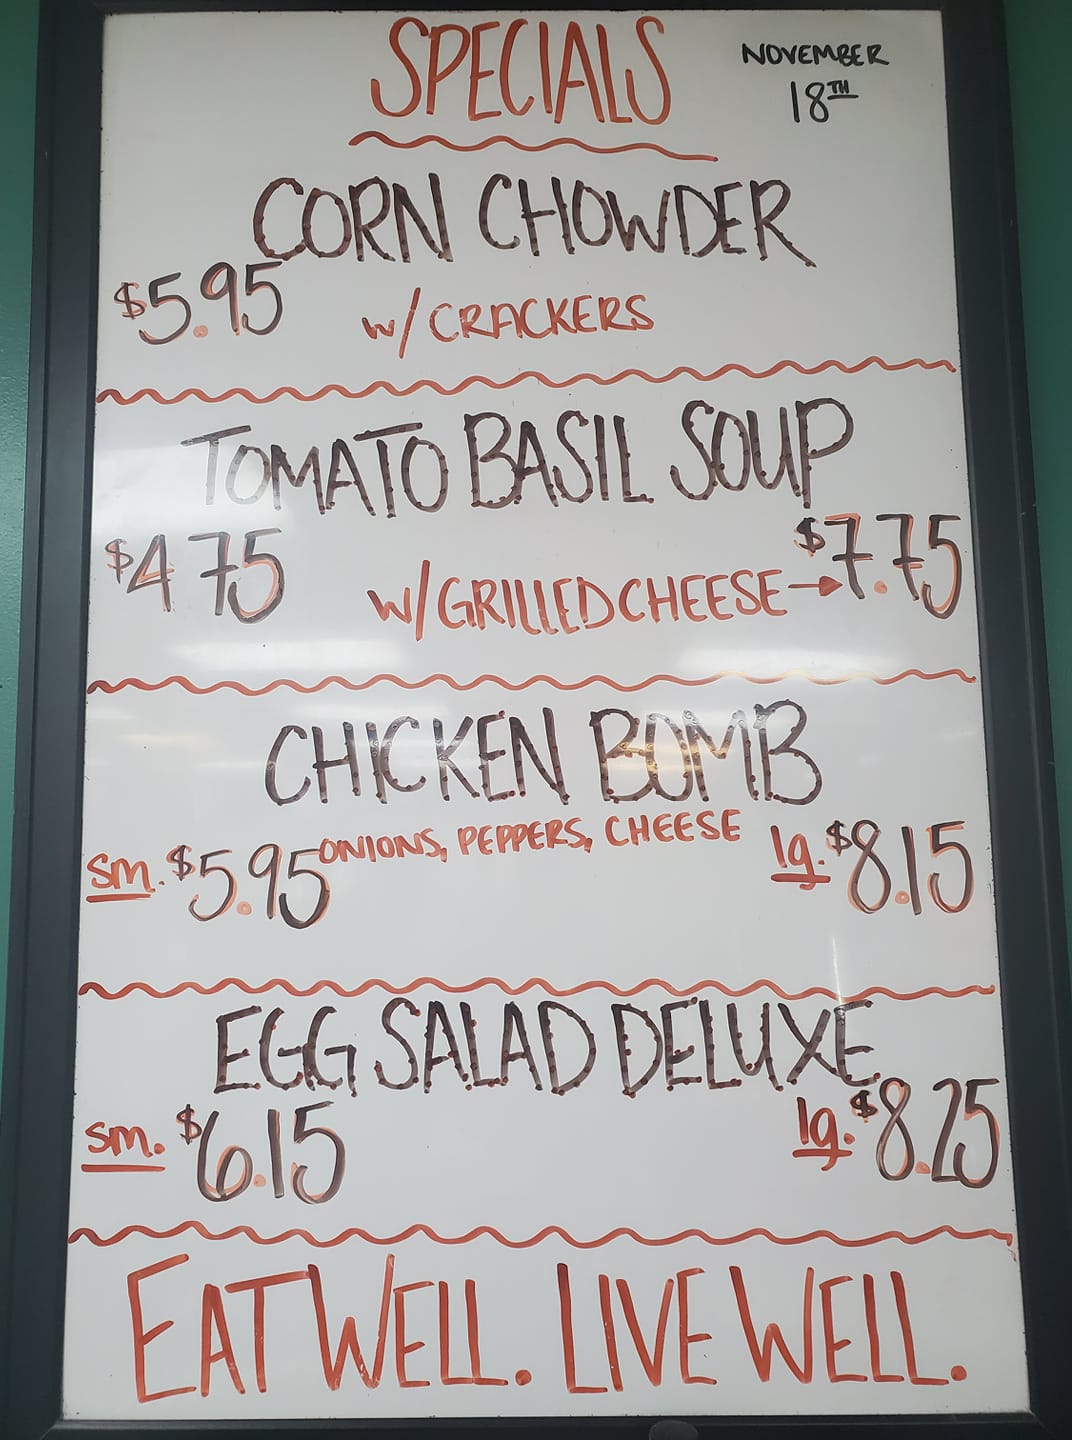 SPECIALS
NOVEMBER
18TH
CORN CHOWDER
$5.95
w/CRACKERS
TOMATO BASIL SOUP
$4.75 w/GRILLED CHEESE → $7.75
CHICKEN BOMB
ONIONS, PEPPERS, CHEESE
sm. $5.95 lg. $8.15
EGG SALAD DELUXE
sm. $6.15 lg. $8.25
EAT WELL. LIVE WELL.